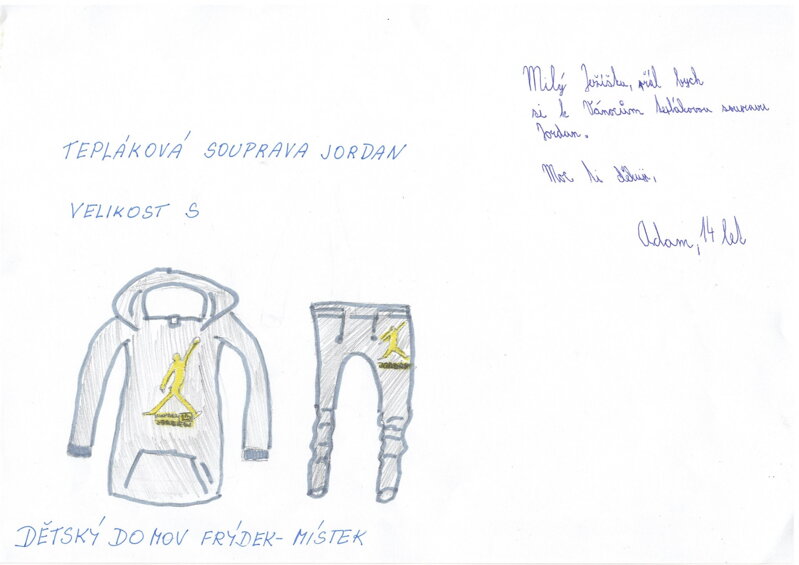 Milý Ježíšku, přál bych
si k Vánocům teplákovou soupravu
Jordan.
Moc ti děkuji,
Adam, 14 let
TEPLÁKOVÁ SOUPRAVA JORDAN
VELIKOST S
JORDAN
JORDAN
DĚTSKÝ DOMOV FRÝDEK-MÍSTEK